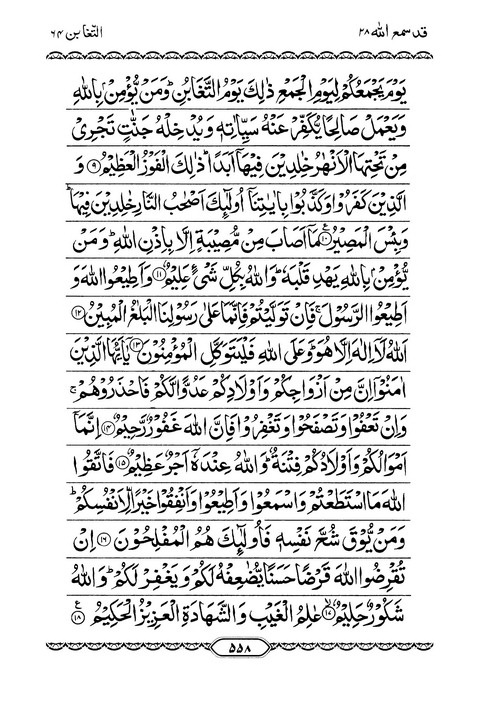 قد سمع الله ٢٨
التغابن ٦٤
يَوْمَ يَجْمَعُكُمْ لِيَوْمِ الْجَمْعِ ذٰلِكَ يَوْمُ التَّغَابُنِ ؕ وَمَنْ يُّؤْمِنْۢ بِاللّٰهِ
وَيَعْمَلْ صَالِحًا يُّكَفِّرْ عَنْهُ سَيِّاٰتِهٖ وَيُدْخِلْهُ جَنّٰتٍ تَجْرِيْ
مِنْ تَحْتِهَا الْاَنْهٰرُ خٰلِدِيْنَ فِيْهَاۤ اَبَدًا ؕ ذٰلِكَ الْفَوْزُ الْعَظِيْمُ ۝٩ وَ
الَّذِيْنَ كَفَرُوْا وَكَذَّبُوْا بِاٰيٰتِنَاۤ اُولٰٓئِكَ اَصْحٰبُ النَّارِ خٰلِدِيْنَ فِيْهَا ؕ
وَبِئْسَ الْمَصِيْرُ ۝١٠ ع مَاۤ اَصَابَ مِنْ مُّصِيْبَةٍ اِلَّا بِاِذْنِ اللّٰهِ ؕ وَمَنْ
يُّؤْمِنْۢ بِاللّٰهِ يَهْدِ قَلْبَهٗ ؕ وَاللّٰهُ بِكُلِّ شَيْءٍ عَلِيْمٌ ۝١١ وَاَطِيْعُوا اللّٰهَ وَ
اَطِيْعُوا الرَّسُوْلَ ۚ فَاِنْ تَوَلَّيْتُمْ فَاِنَّمَا عَلٰى رَسُوْلِنَا الْبَلٰغُ الْمُبِيْنُ ۝١٢
اَللّٰهُ لَاۤ اِلٰهَ اِلَّا هُوَ ؕ وَعَلَى اللّٰهِ فَلْيَتَوَكَّلِ الْمُؤْمِنُوْنَ ۝١٣ يٰۤاَيُّهَا الَّذِيْنَ
اٰمَنُوْۤا اِنَّ مِنْ اَزْوَاجِكُمْ وَاَوْلَادِكُمْ عَدُوًّا لَّكُمْ فَاحْذَرُوْهُمْ ۚ
وَاِنْ تَعْفُوْا وَتَصْفَحُوْا وَتَغْفِرُوْا فَاِنَّ اللّٰهَ غَفُوْرٌ رَّحِيْمٌ ۝١٤ اِنَّمَاۤ
اَمْوَالُكُمْ وَاَوْلَادُكُمْ فِتْنَةٌ ؕ وَاللّٰهُ عِنْدَهٗۤ اَجْرٌ عَظِيْمٌ ۝١٥ فَاتَّقُوا
اللّٰهَ مَا اسْتَطَعْتُمْ وَاسْمَعُوْا وَاَطِيْعُوْا وَاَنْفِقُوْا خَيْرًا لِّاَنْفُسِكُمْ ؕ
وَمَنْ يُّوْقَ شُحَّ نَفْسِهٖ فَاُولٰٓئِكَ هُمُ الْمُفْلِحُوْنَ ۝١٦ اِنْ
تُقْرِضُوا اللّٰهَ قَرْضًا حَسَنًا يُّضٰعِفْهُ لَكُمْ وَيَغْفِرْ لَكُمْ ؕ وَاللّٰهُ
شَكُوْرٌ حَلِيْمٌ ۝١٧ عٰلِمُ الْغَيْبِ وَالشَّهَادَةِ الْعَزِيْزُ الْحَكِيْمُ ۝١٨ ع
٥٥٨